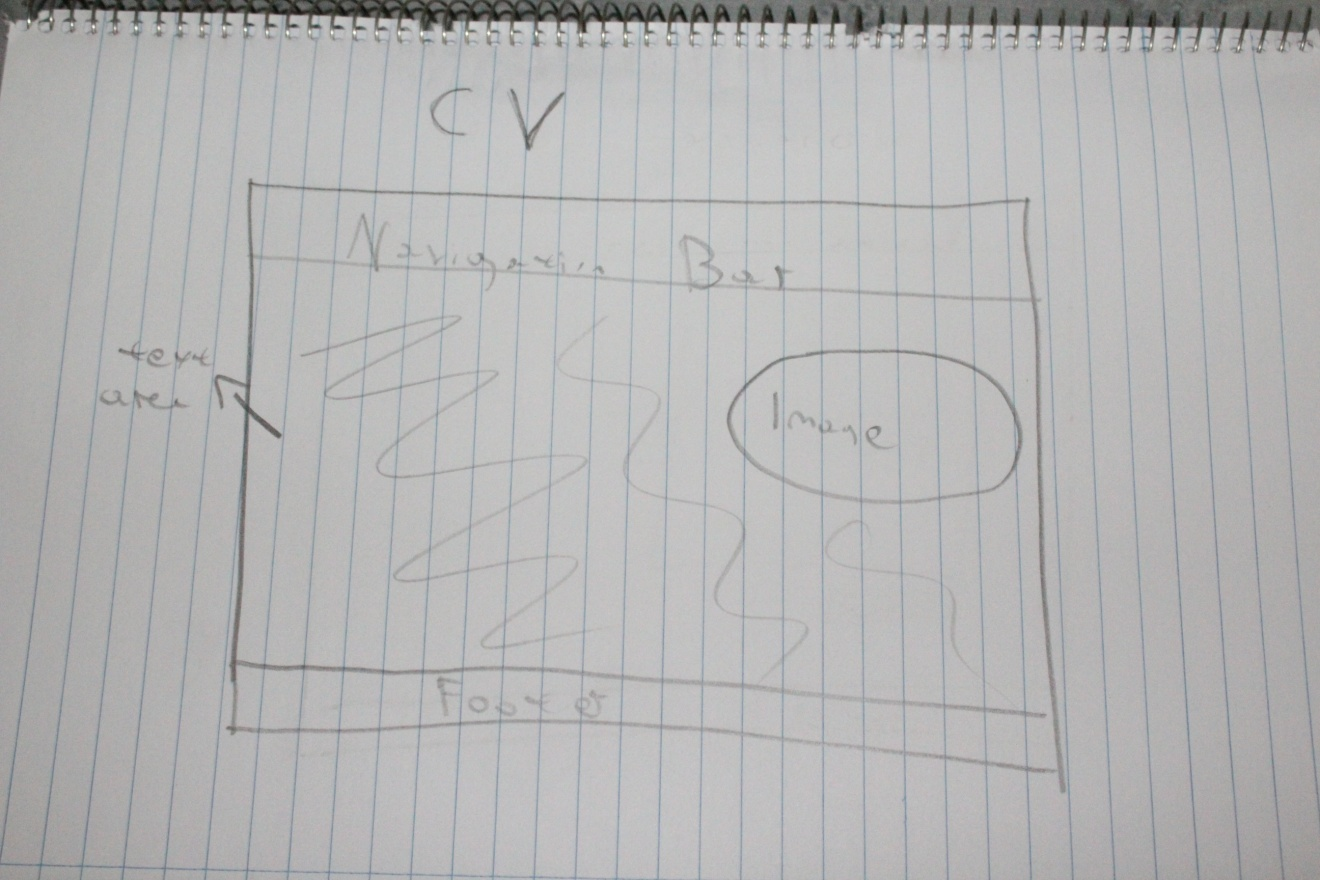 CV
Navigation Bar
text
area
Image
Footer